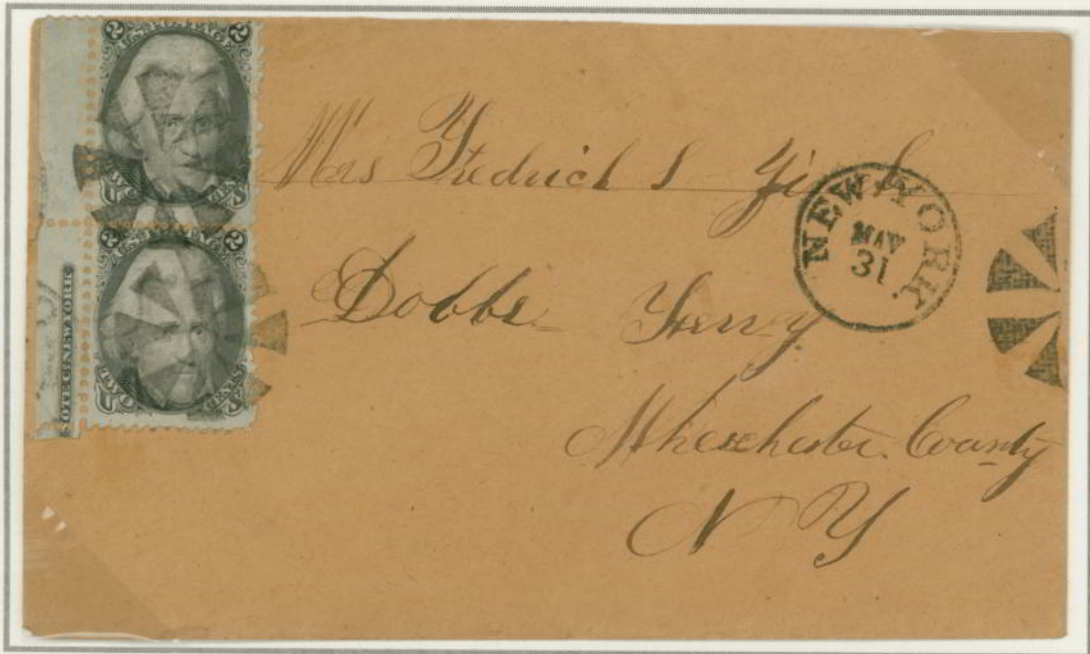 U.S. POSTAGE
TWO CENTS
U.S. POSTAGE
TWO CENTS
NOTE CO. NEW YORK
Mrs Fredrich S
NEW-YORK.
MAY
31
Dobbs Ferry
Wheschester County
N Y